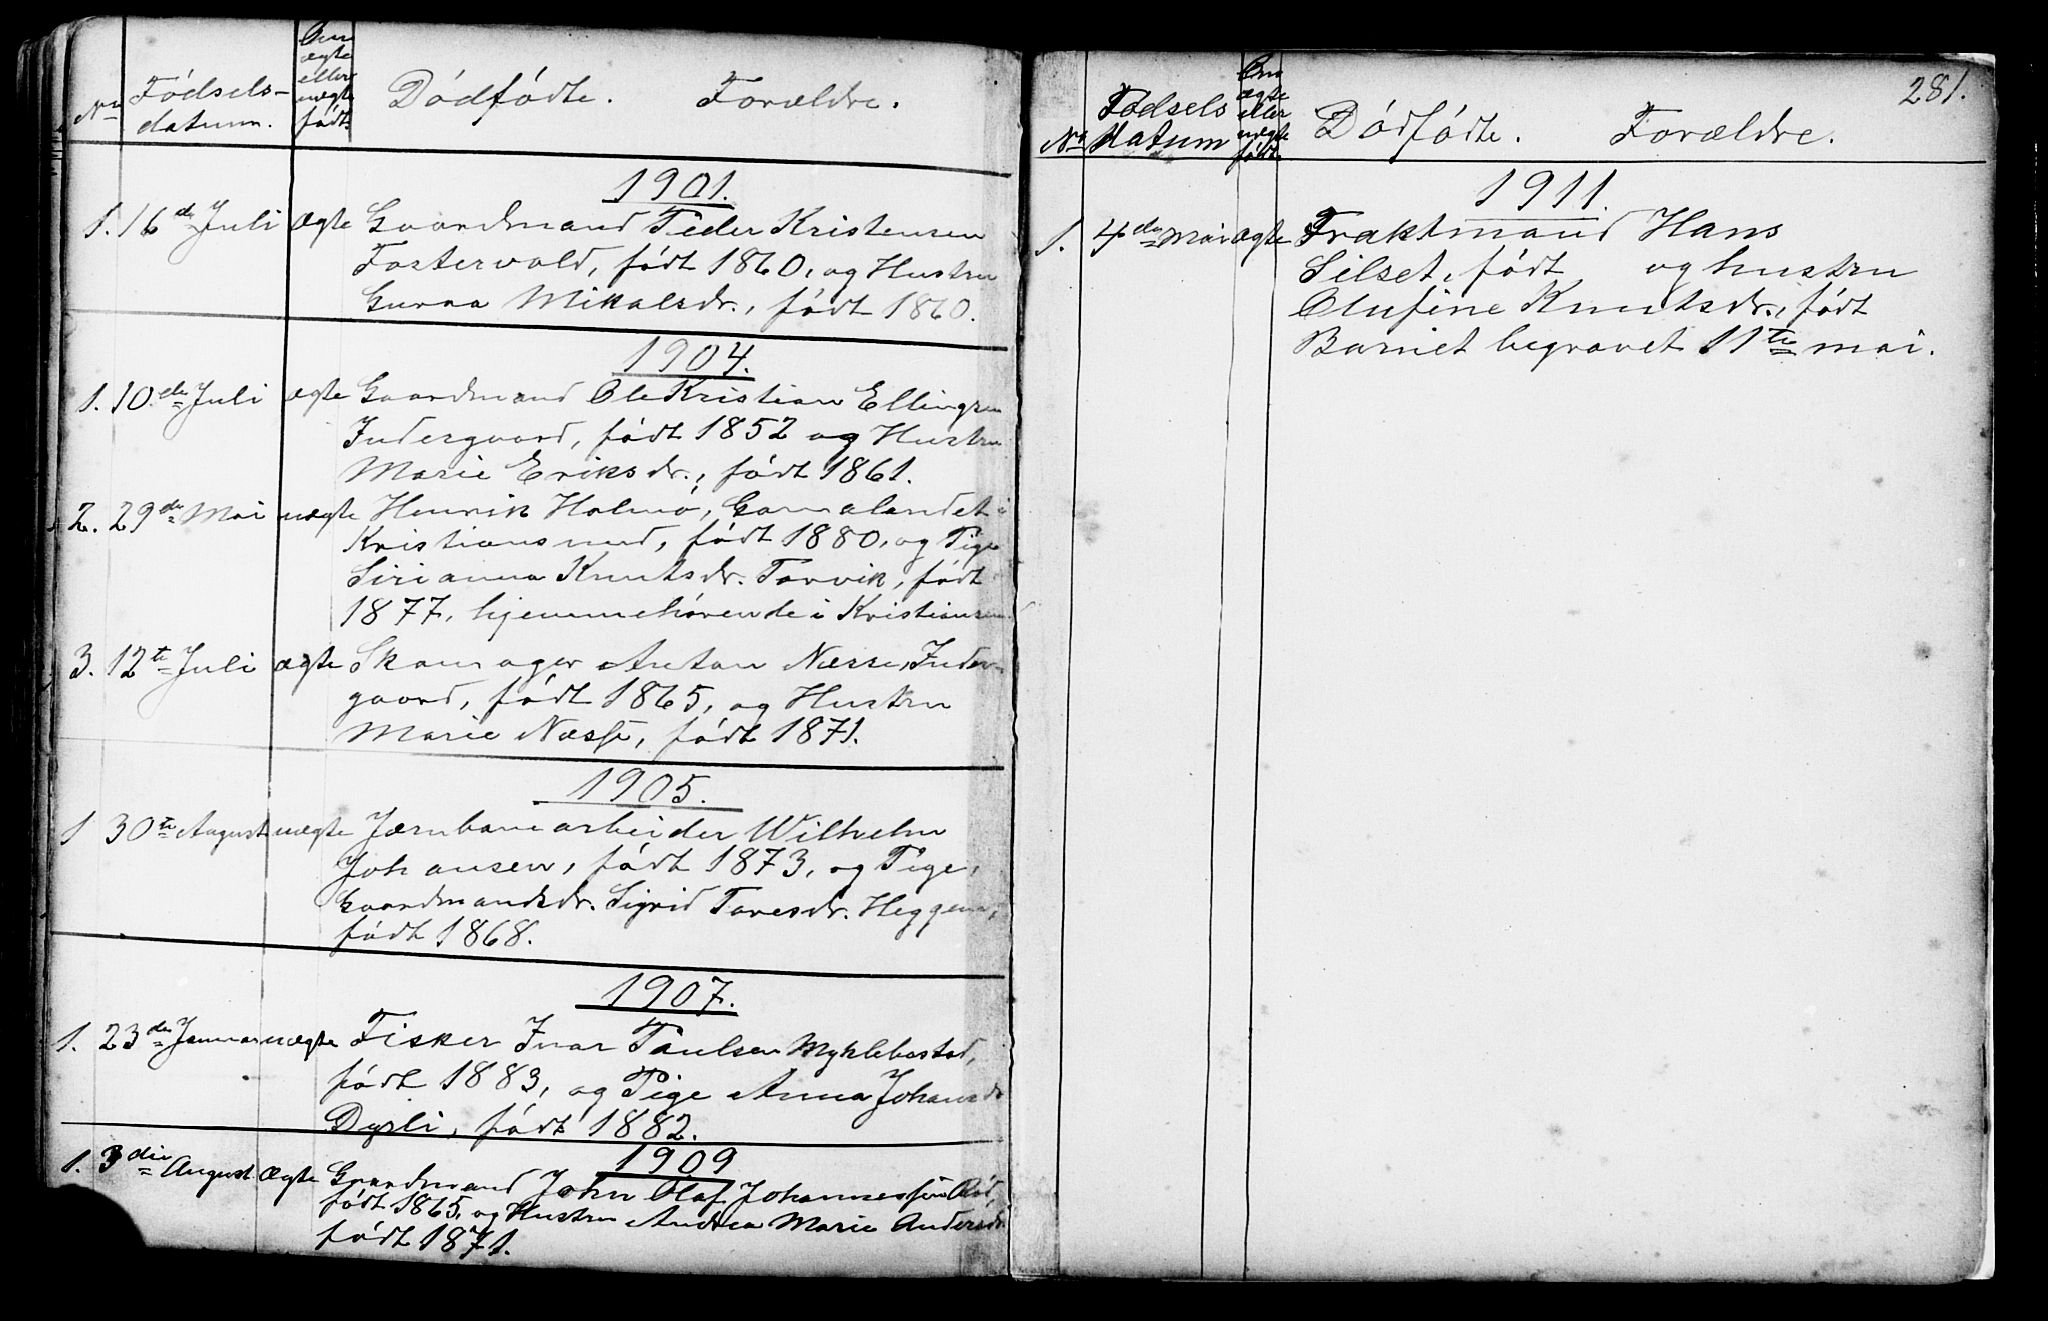 No Fødsels-
datum.
Om
ægte
eller
uægte
født.
Dødfødte. Forældre.
1901.
1. 16de Juli ægte Gaardmand Peder Kristensen
Fostervold, født 1860, og Hustru
Guraa Mikalsdr., født 1860.
1904.
1. 10de Juli ægte Gaardmand Ole Kristian Ellingsen
Indergaard, født 1852 og Hustru
Marie Eriksdr., født 1861.
2. 29de Mai uægte Henrik Holmø, Gomalandet i
Kristiansund, født 1880, og Pige
Sirianna Knutsdr. Torvik, født
1877, hjemmehørende i Kristiansund
3. 12te Juli ægte Skomager Anton Næsse, Inder-
gaard, født 1865, og Hustru
Marie Næsse, født 1871.
1905.
1 30te August uægte Jærnbanearbeider Wilhelm
Johansen, født 1873, og Pige,
Gaardmandsdr. Sigrid Toresdr. Heggem,
født 1868.
1907.
1. 23de Januar uægte Fisker Ivar Paulsen Myklebostad,
født 1883, og Pige Anna Johansdr
Dyrli, født 1882.
1909
1. 3die August ægte Gaardmand John Olaf Johannessen Rød,
født 1865, og Hustru Andrea Marie Andersdr
født 1871.
281.
No Fødsels
datum
Om
ægte
eller
uægte
født.
Dødfødte. Forældre.
1911.
1. 4de Mai ægte Fraktmand Hans
Silset, født og hustru
Olufine Knutsdr., født
Barnet begravet 11te mai.